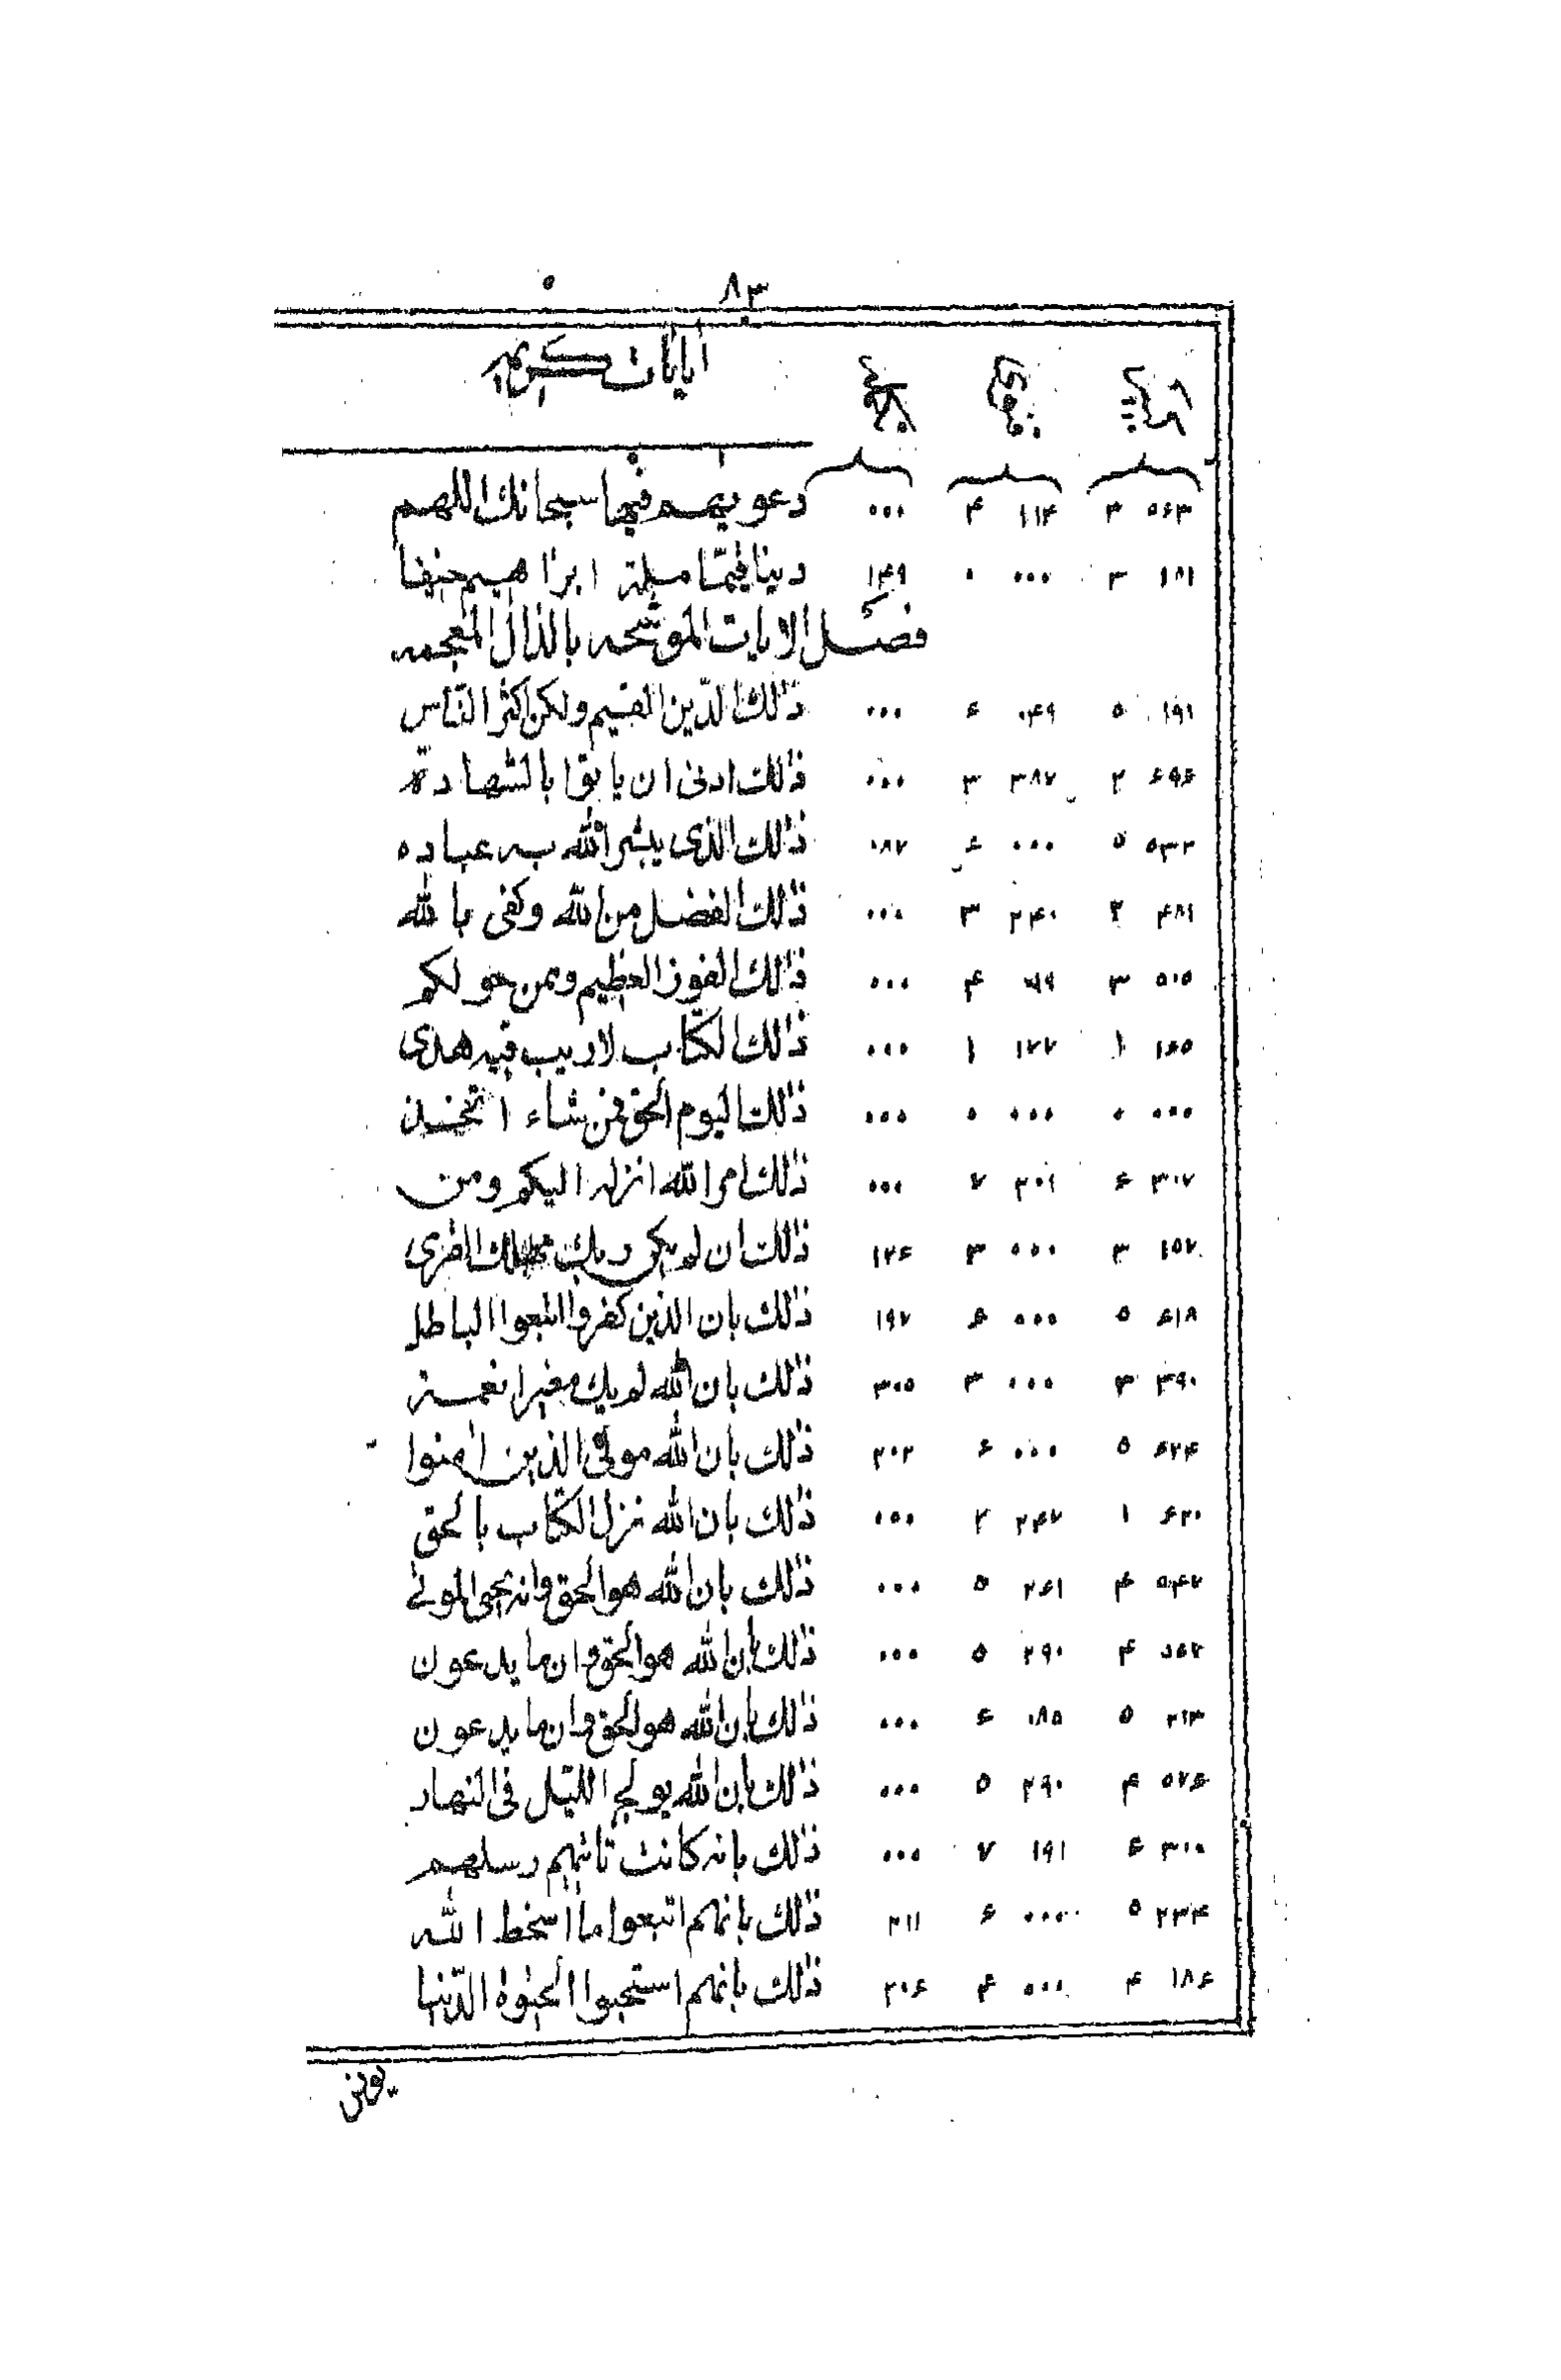 ٨٣
ایات کریمه
٥٦٣ ٣ ١١۴ ۴ ٠٠٠ دعویهم فیها سبحانك اللهم
١٨١ ٣ ٠٠٠ ٠ ١۴٩ دینا قیمّا ملة ابراهیم حنیفا
فصل الایات الموشحه بالذال المعجمه
١٩١ ٥ ٠۴٩ ۶ ٠٠٠ ذٰلك الدّین القیم ولكن اكثر النّاس
۶٩۶ ٢ ٣٨٧ ٣ ٠٠٠ ذٰلك ادنی ان یاتوا بالشهادة
٥٣٢ ٥ ٠٠٠ ۶ ٠٨٧ ذٰلك الذی یبشر الله به عباده
۴٨١ ٢ ٢۴٠ ٣ ٠٠٠ ذٰلك الفضل من الله وكفی بالله
٥٠٥ ٣ ٠٩٩ ۴ ٠٠٠ ذٰلك الفوز العظیم وممن حولكم
١۶٥ ١ ١٧٧ ١ ٠٠٠ ذٰلك الكتاب لاریب فیه هدی
٠٠٠ ٠ ٠٠٠ ٠ ٠٠٠ ذٰلك الیوم الحق فمن شاء اتخذ
٣٠٧ ۶ ٢٠١ ٧ ٠٠٠ ذٰلك امر الله انزله الیكم ومن
١٥٧ ٣ ٠٠٠ ٣ ١٢۶ ذٰلك ان لم یكن ربك مهلك القری
۶١٨ ٥ ٠٠٠ ۶ ١٩٧ ذٰلك بان الذین كفروا اتبعوا الباطل
٣٩٠ ٣ ٠٠٠ ٣ ٣٠٥ ذٰلك بان الله لم یك مغیرا نعمة
۶٢۴ ٥ ٠٠٠ ۶ ٢٠٢ ذٰلك بان الله مولی الذین اٰمنوا
۶٢٠ ١ ٢۴٧ ٢ ٠٠٠ ذٰلك بان الله نزل الكتاب بالحق
٥۴٧ ۴ ٢۶١ ٥ ٠٠٠ ذٰلك بان الله هو الحق وانه یحیی الموتی
٥۶٧ ۴ ٢٩٠ ٥ ٠٠٠ ذٰلك بان الله هو الحق وان ما یدعون
٢١٣ ٥ ٠٨٥ ۶ ٠٠٠ ذٰلك بان الله هو الحق وان ما یدعون
٥٧۶ ۴ ٢٩٠ ٥ ٠٠٠ ذٰلك بان الله یولج اللیل فی النهار
٣١٠ ۶ ١٩١ ٧ ٠٠٠ ذٰلك بانه كانت تاتیهم رسلهم
٢٣۴ ٥ ٠٠٠ ۶ ٢١١ ذٰلك بانهم اتبعوا ما اسخط الله
١٨۶ ۴ ٠٠٠ ۴ ٢٠۶ ذٰلك بانهم استحبوا الحیٰوة الدّنیا